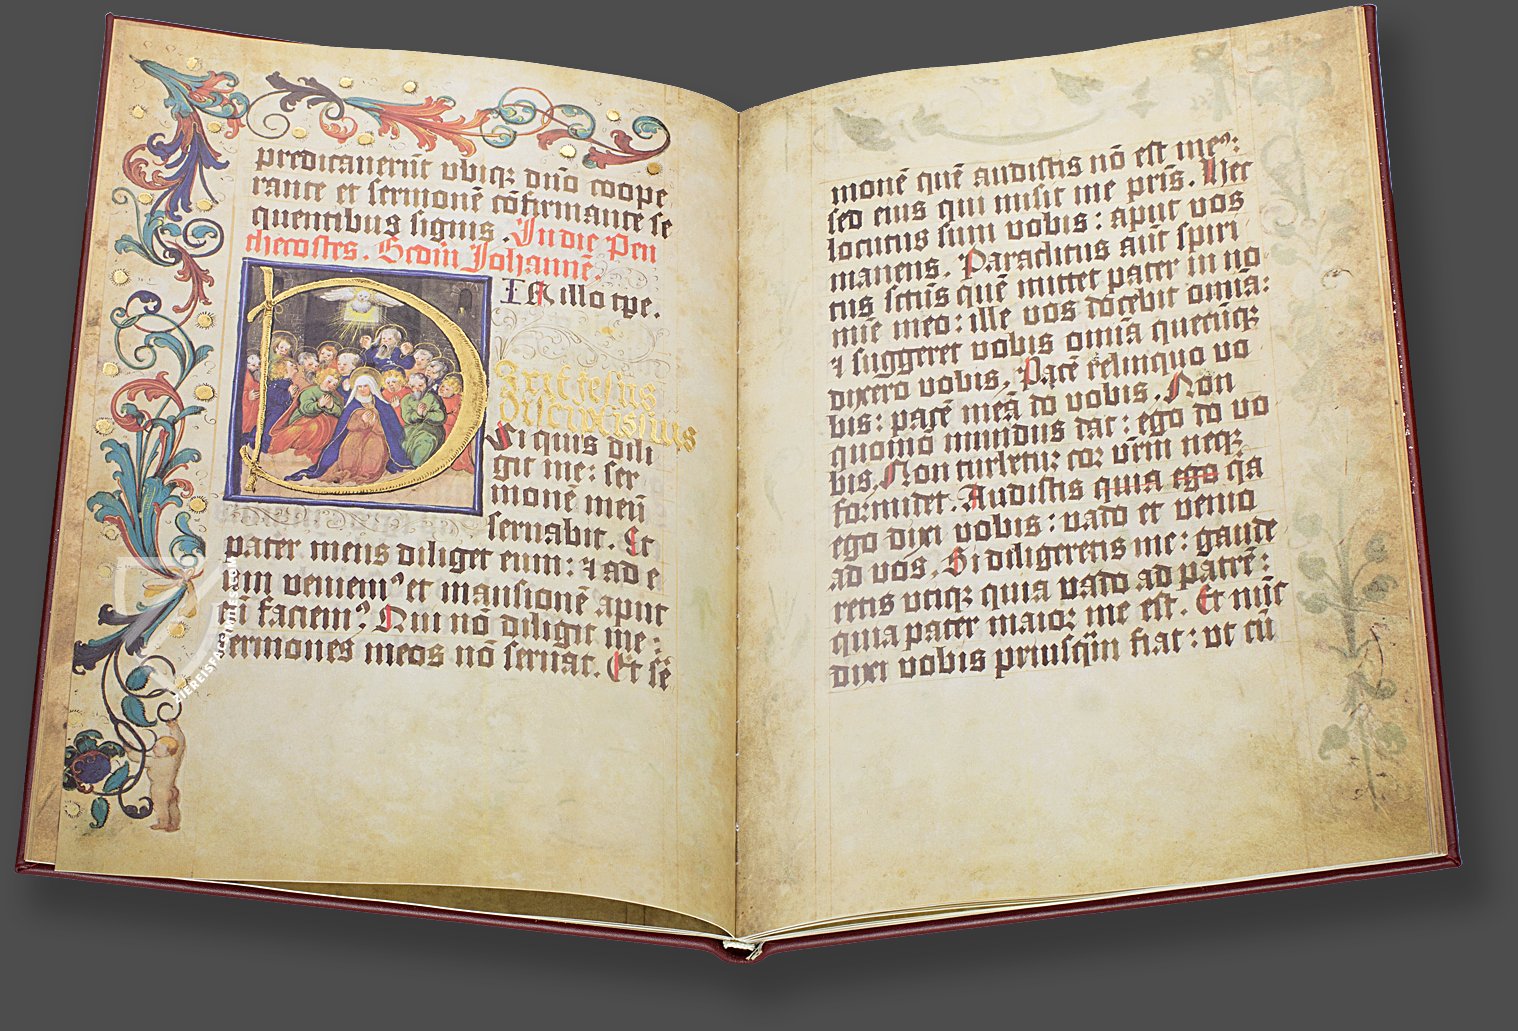 predicauerūt vbiqꝫ dño coope
rante et sermonē cōfirmante se
quentibus signis . In die Pen
thecostes . Scdm Johannē.
IN illo tpe .
Dixit iesus
discipulis suis
Si quis dili
git me : ser
monē meū
seruabit . Et
pater meus diliget eum : ⁊ ad e
um veniemꝰ et mansionē aput
eū faciemꝰ . Qui nō diligit me :
sermones meos nō seruat . Et ser
monē quē audistis nō est meꝰ :
sed eius qui misit me pris . Hec
locutus sum vobis : aput vos
manens . Paraclitus aūt spiri
tus sctūs quē mittet pater in no
mīe meo : ille vos docebit omīa :
⁊ suggeret vobis omīa quecūqꝫ
dixero vobis . Pacē relinquo vo
bis : pacē meā do vobis . Non
quomō mundus dat : ego do vo
bis . Non turbetur cor vrm neqꝫ
formidet . Audistis quia ego q̄a
ego dixi vobis : vado et venio
ad vos . Si diligeretis me : gaude
retis vtiqꝫ quia vado ad patrē :
quia pater maior me est . Et nūc
dixi vobis priusq̄m fiat : vt cū
ZIEREIS FACSIMILES.COM